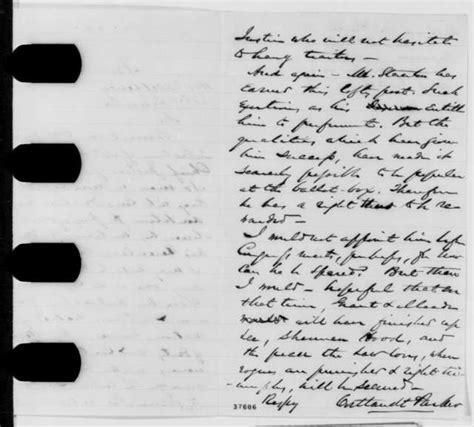 Justice who will not hesitate
to hang traitors —
And again — Mr. Stanton has
earned this lofty post. Such
exertions as his entitle
him to preferment. But the
qualities which have given
him success, have made it
scarcely possible to be popular
at the ballot-box. Therefore
he has a right to be re
warded —
I would not appoint him before
Congress meets, perhaps, for how
can he be spared? But then
I would — hopeful that
that time, Grant & Meade
will have finished up
Lee, Sherman Hood, and
the peace the law loves, when
rogues are punished & right tri
umphs, will be secured —
Respy
Cortlandt Parker
37606